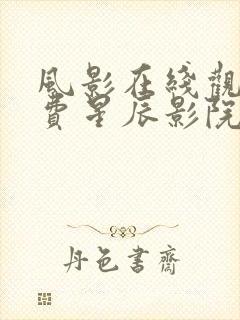 風影在綫觀
費星辰影院
丹色書齋